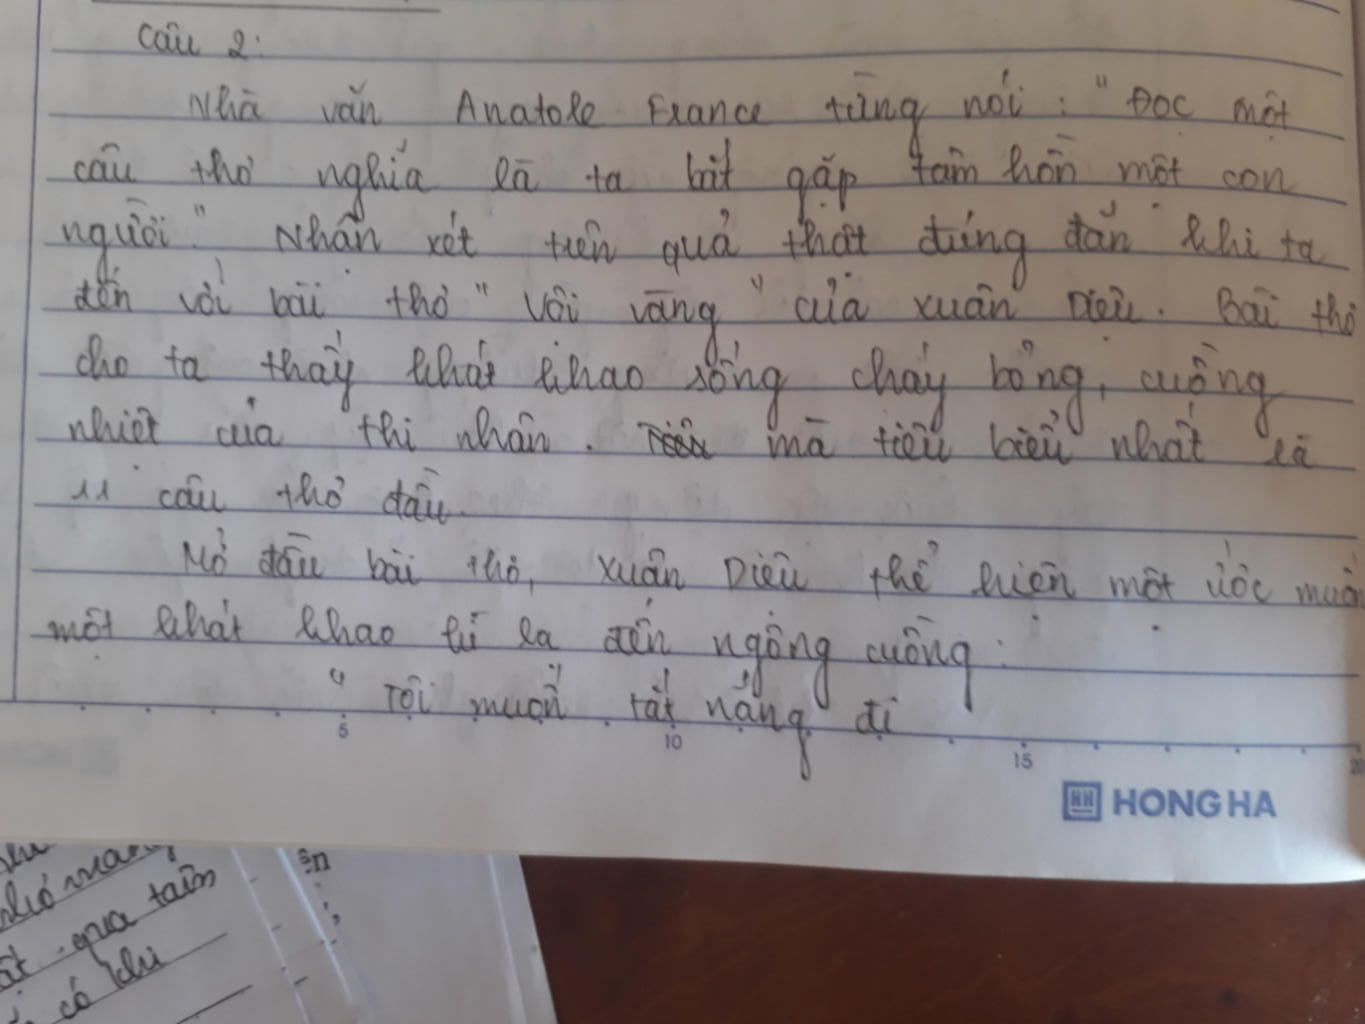 Câu 2:
Nhà văn Anatole France từng nói: "Đọc một
câu thơ nghĩa là ta bắt gặp tâm hồn một con
người." Nhận xét trên quả thật đúng đắn khi ta
đến với bài thơ "Vội vàng" của Xuân Diệu. Bài thơ
cho ta thấy khát khao sống cháy bỏng, cuồng
nhiệt của thi nhân. mà tiêu biểu nhất là
11 câu thơ đầu.
Mở đầu bài thơ, Xuân Diệu thể hiện một ước
một khát khao kì lạ đến ngông cuồng:
"Tôi muốn tắt nắng đi
5 10 15 20
HH HONG HA
qua tâm
có khi